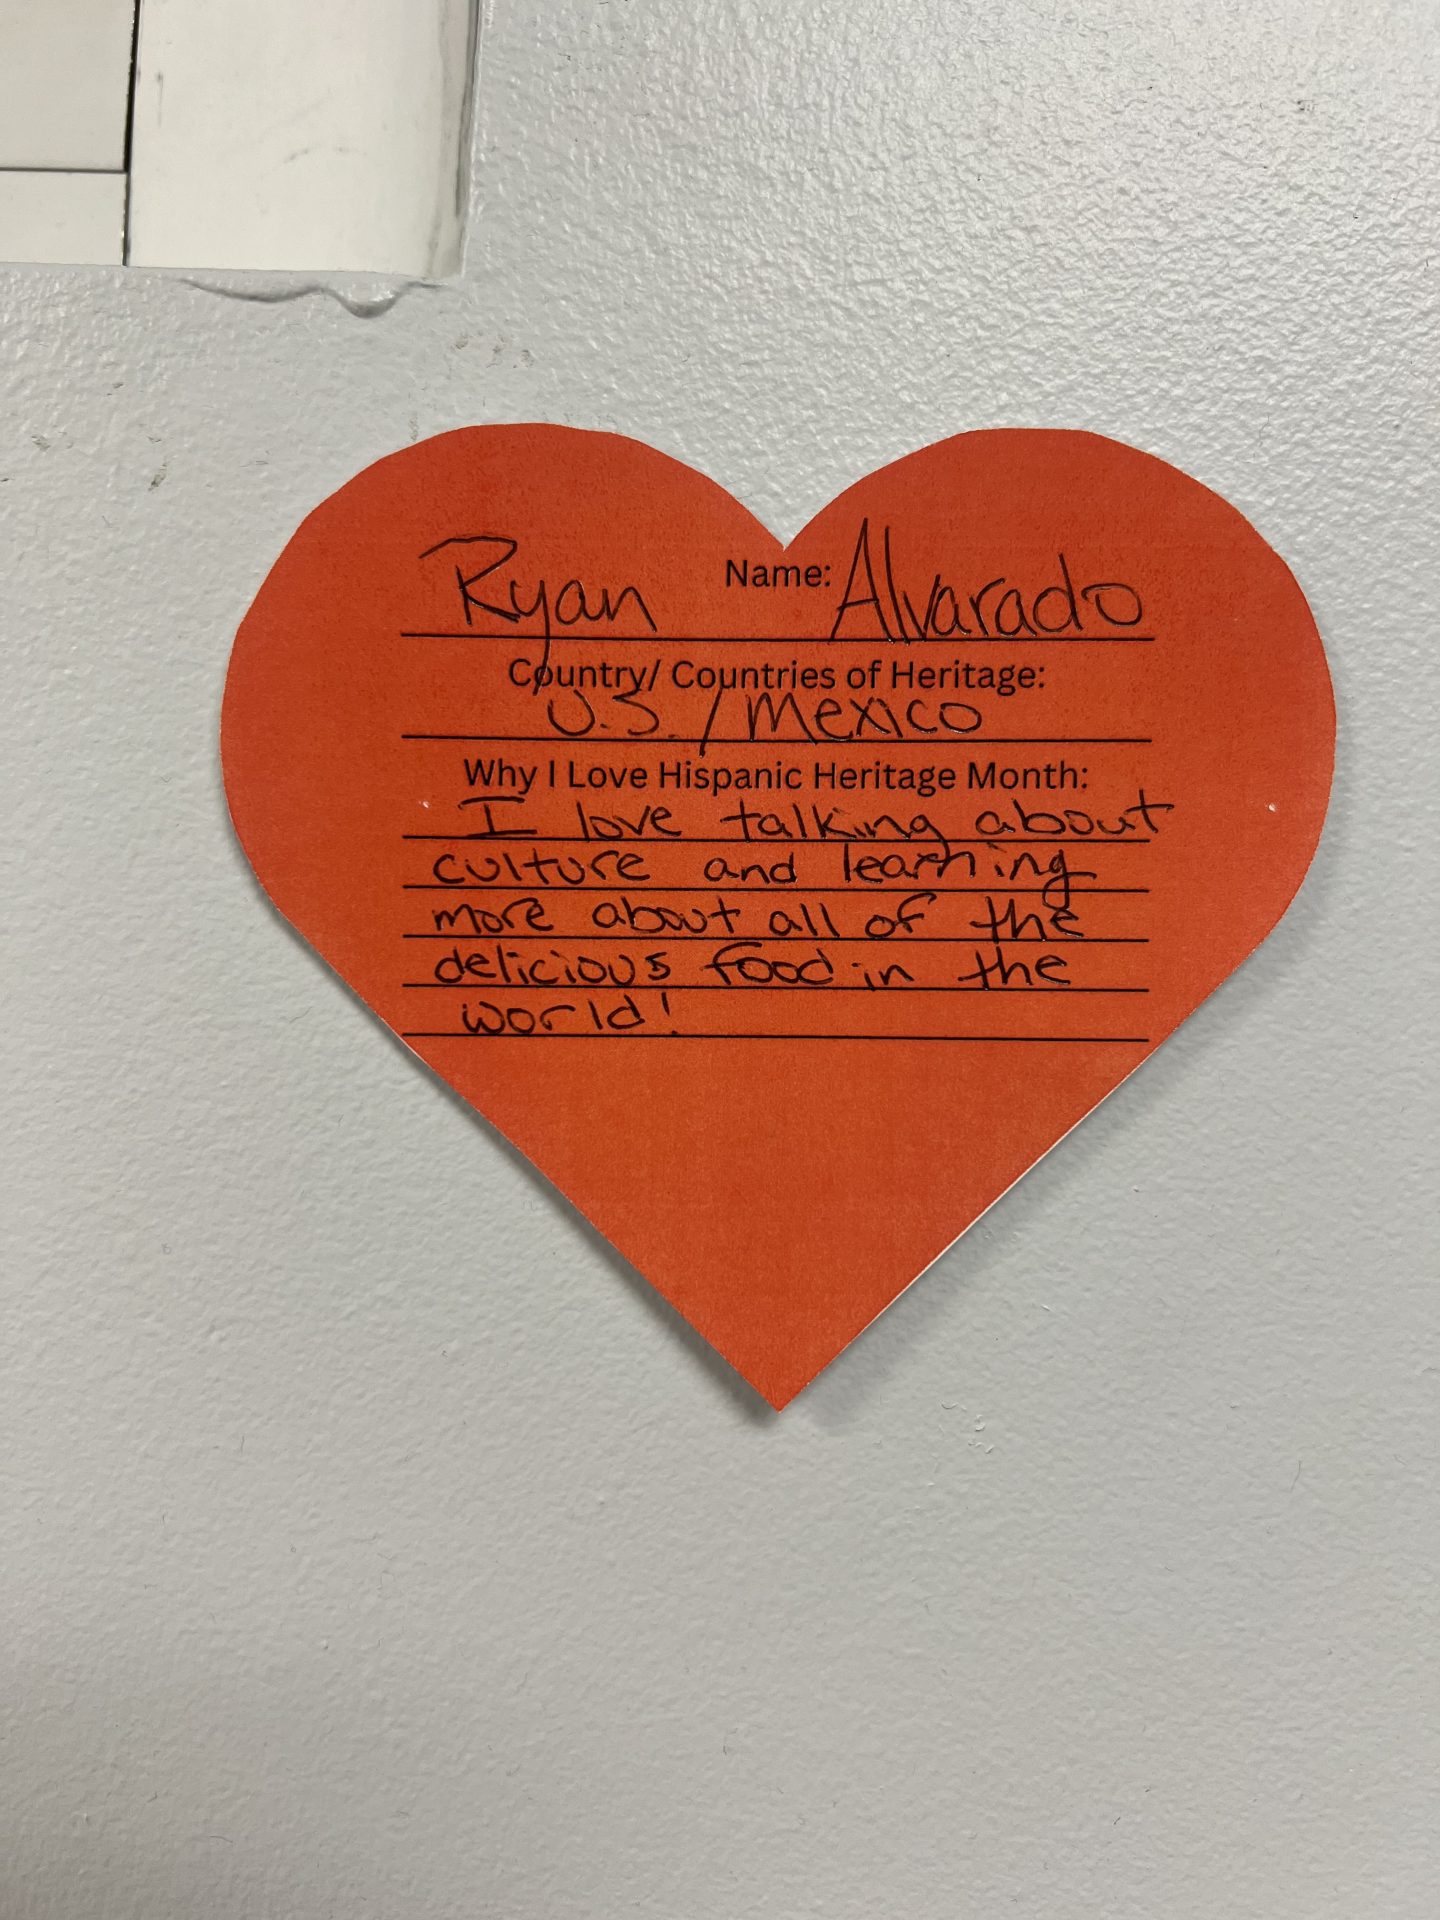 Ryan Name: Alvarado
Country/ Countries of Heritage:
U.S. / Mexico
Why I Love Hispanic Heritage Month:
I love talking about
culture and learning
more about all of the
delicious food in the
world!